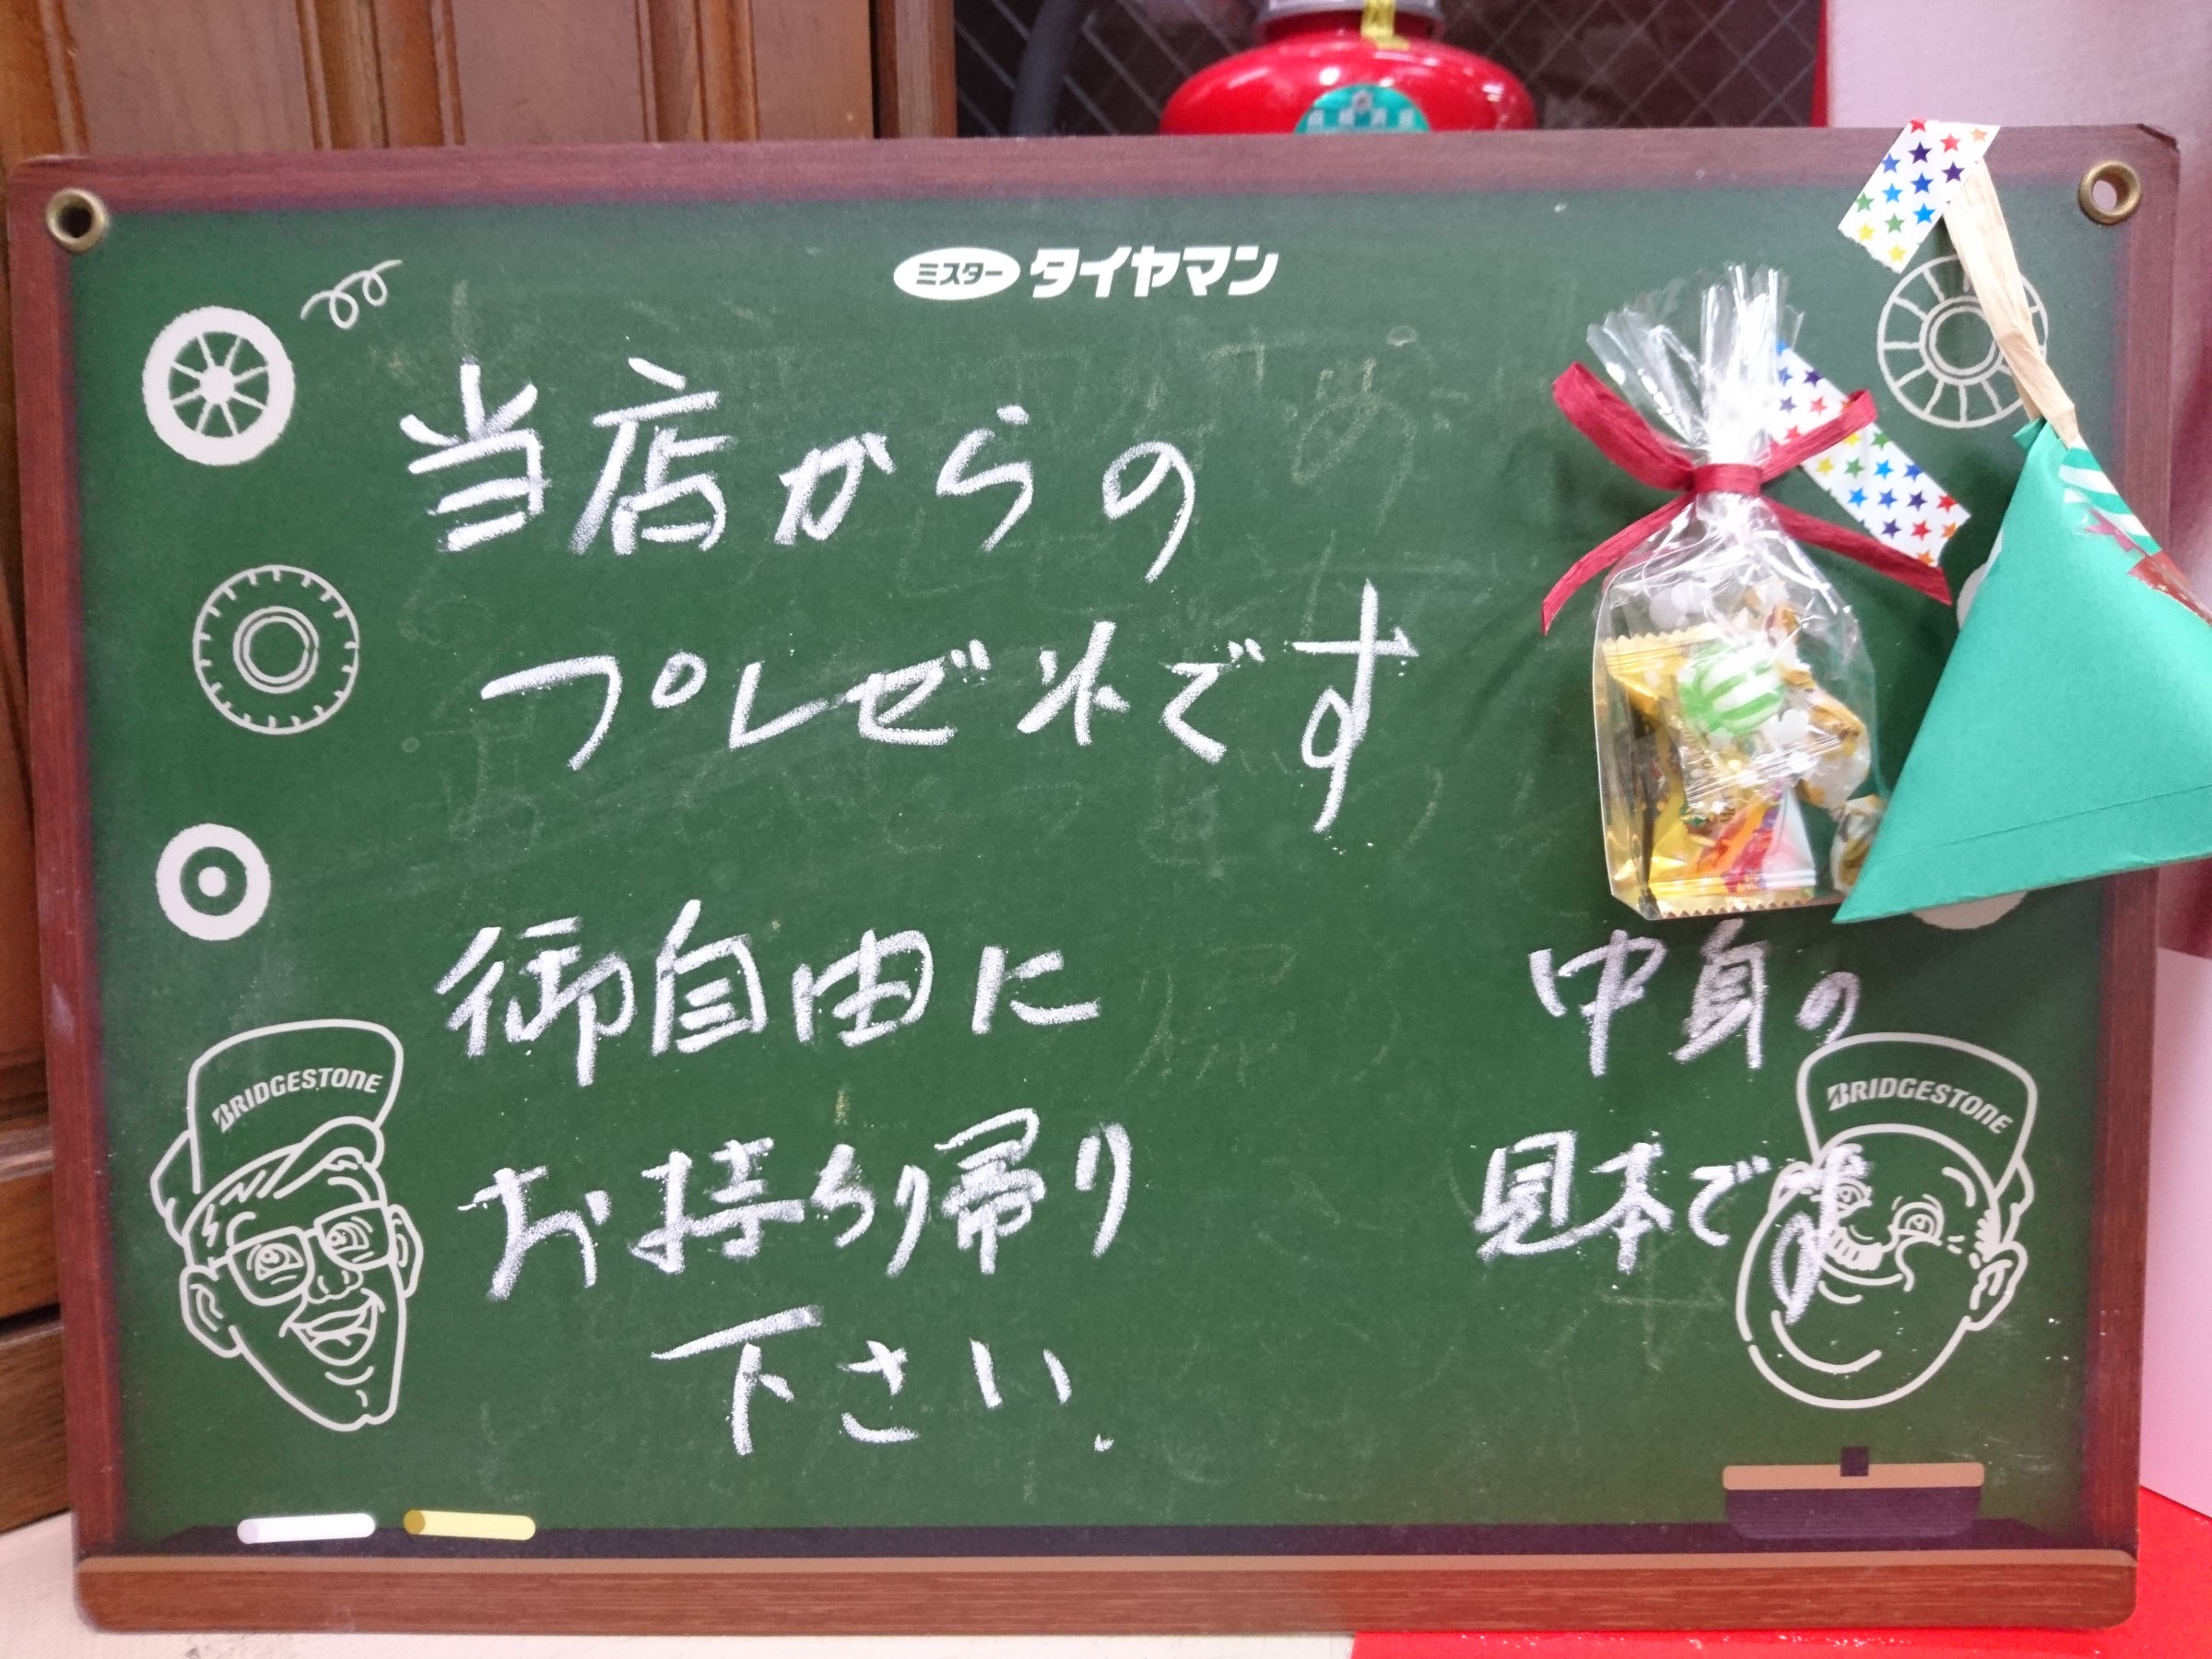 ミスター タイヤマン
当店からの
プレゼントです
御自由に
お持ち帰り
下さい.
中身の
見本です
BRIDGESTONE
BRIDGESTONE